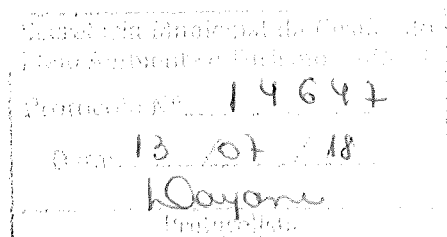 Secretaria Municipal da
Meio Ambiente e Turismo
Protocolo Nº 14647
Data 13 / 07 / 18
Dayane